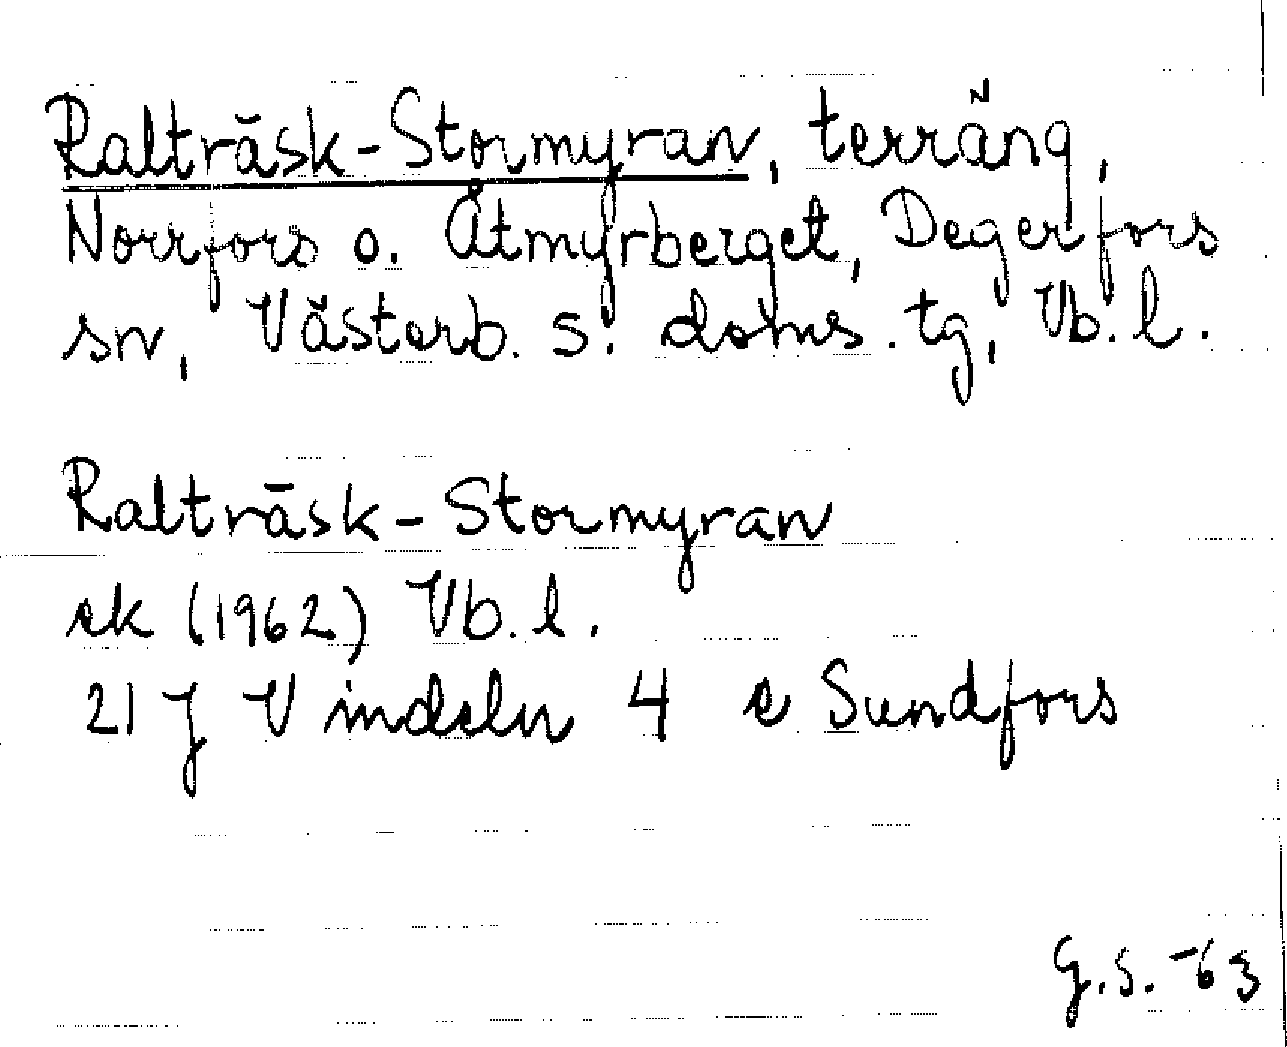 Ralträsk-Stormyran, terräng,
Norrfors o. Åtmyrberget, Degerfors
sn, Västerb. s. doms. tg, Vb. l.
Ralträsk-Stormyran
ek (1962) Vb. l.
21 J Vindeln 4 e Sundfors
G.S. -63